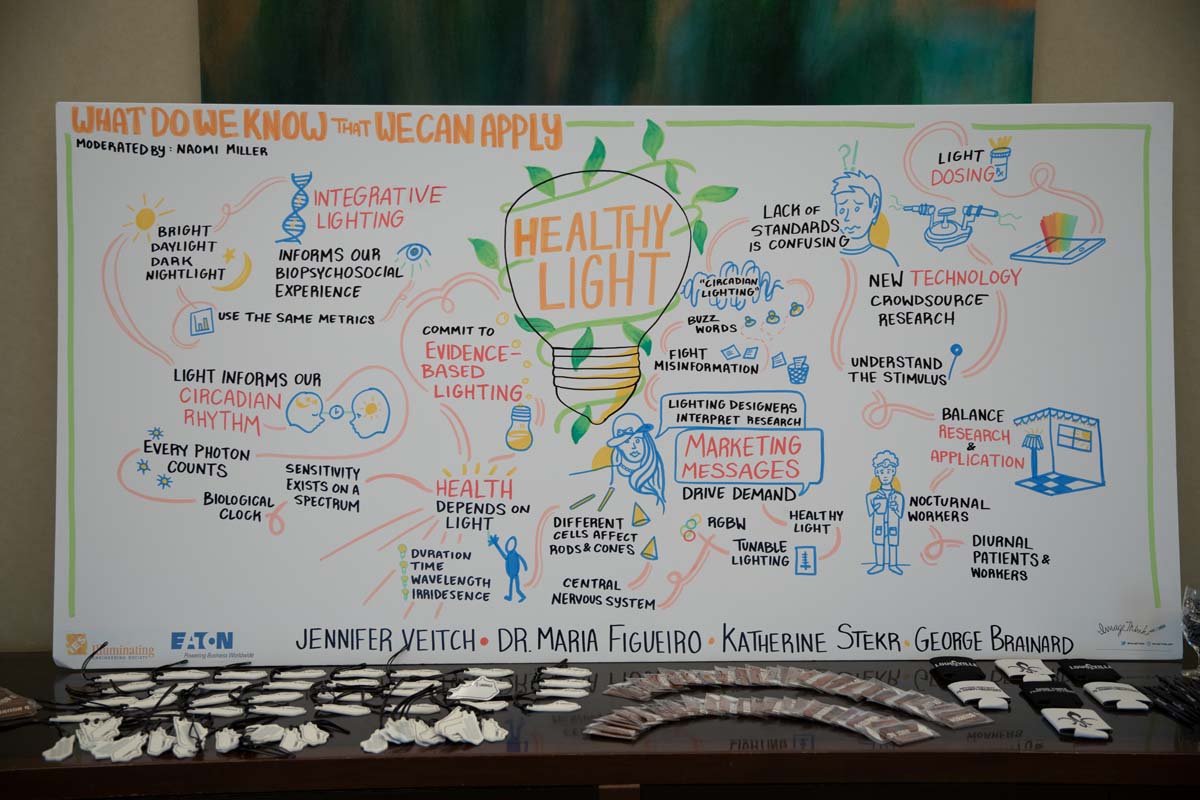 WHAT DO WE KNOW THAT WE CAN APPLY
MODERATED BY: NAOMI MILLER
HEALTHY
LIGHT
INTEGRATIVE
LIGHTING
INFORMS OUR
BIOPSYCHOSOCIAL
EXPERIENCE
BRIGHT
DAYLIGHT
DARK
NIGHTLIGHT
USE THE SAME METRICS
LIGHT INFORMS OUR
CIRCADIAN
RHYTHM
EVERY PHOTON
COUNTS
BIOLOGICAL
CLOCK
SENSITIVITY
EXISTS ON A
SPECTRUM
COMMIT TO
EVIDENCE-
BASED
LIGHTING
HEALTH
DEPENDS ON
LIGHT
DURATION
TIME
WAVELENGTH
IRRIDESENCE
DIFFERENT
CELLS AFFECT
RODS & CONES
CENTRAL
NERVOUS SYSTEM
LACK OF
STANDARDS
IS CONFUSING
?!
"CIRCADIAN
LIGHTING"
BUZZ
WORDS
FIGHT
MISINFORMATION
LIGHTING DESIGNERS
INTERPRET RESEARCH
MARKETING
MESSAGES
DRIVE DEMAND
RGBW
HEALTHY
LIGHT
TUNABLE
LIGHTING
LIGHT
DOSING
Rx
NEW TECHNOLOGY
CROWDSOURCE
RESEARCH
UNDERSTAND
THE STIMULUS
BALANCE
RESEARCH
&
APPLICATION
NOCTURNAL
WORKERS
DIURNAL
PATIENTS &
WORKERS
Illuminating
ENGINEERING SOCIETY
EATON
Powering Business Worldwide
JENNIFER VEITCH • DR. MARIA FIGUEIRO • KATHERINE STEKR • GEORGE BRAINARD
ImageThink